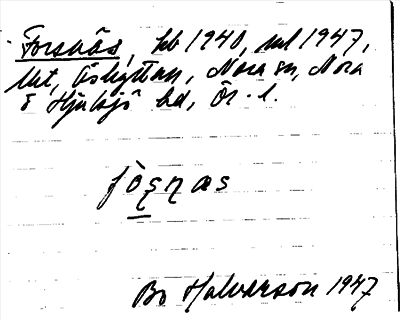 Forsnäs, hb 1940, ml 1947,
lht, Åshyttan, Nora sn, Nora
& Hjulsjö bd, Ör. l.
fò̱ʂɳas
Bo Halvarson 1947